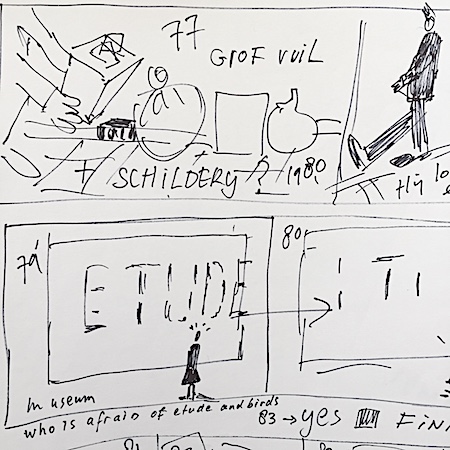 77
GROF VUIL
SCHILDERY ? 1980
Hij lo
79
80
ETUDE
TI
museum
who is afraid of etude and birds
83 → yes FINI